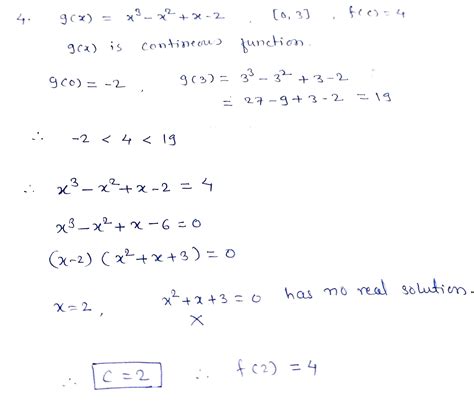 4. g(x) = x³ - x² + x - 2 , [0, 3] , f(c) = 4
g(x) is contineous function.
g(0) = -2 , g(3) = 3³ - 3² + 3 - 2
= 27 - 9 + 3 - 2 = 19
∴ -2 < 4 < 19
∴ x³ - x² + x - 2 = 4
x³ - x² + x - 6 = 0
(x-2) (x² + x + 3) = 0
x = 2 , x² + x + 3 = 0 has no real solution.
×
∴ C = 2 ∴ f(2) = 4